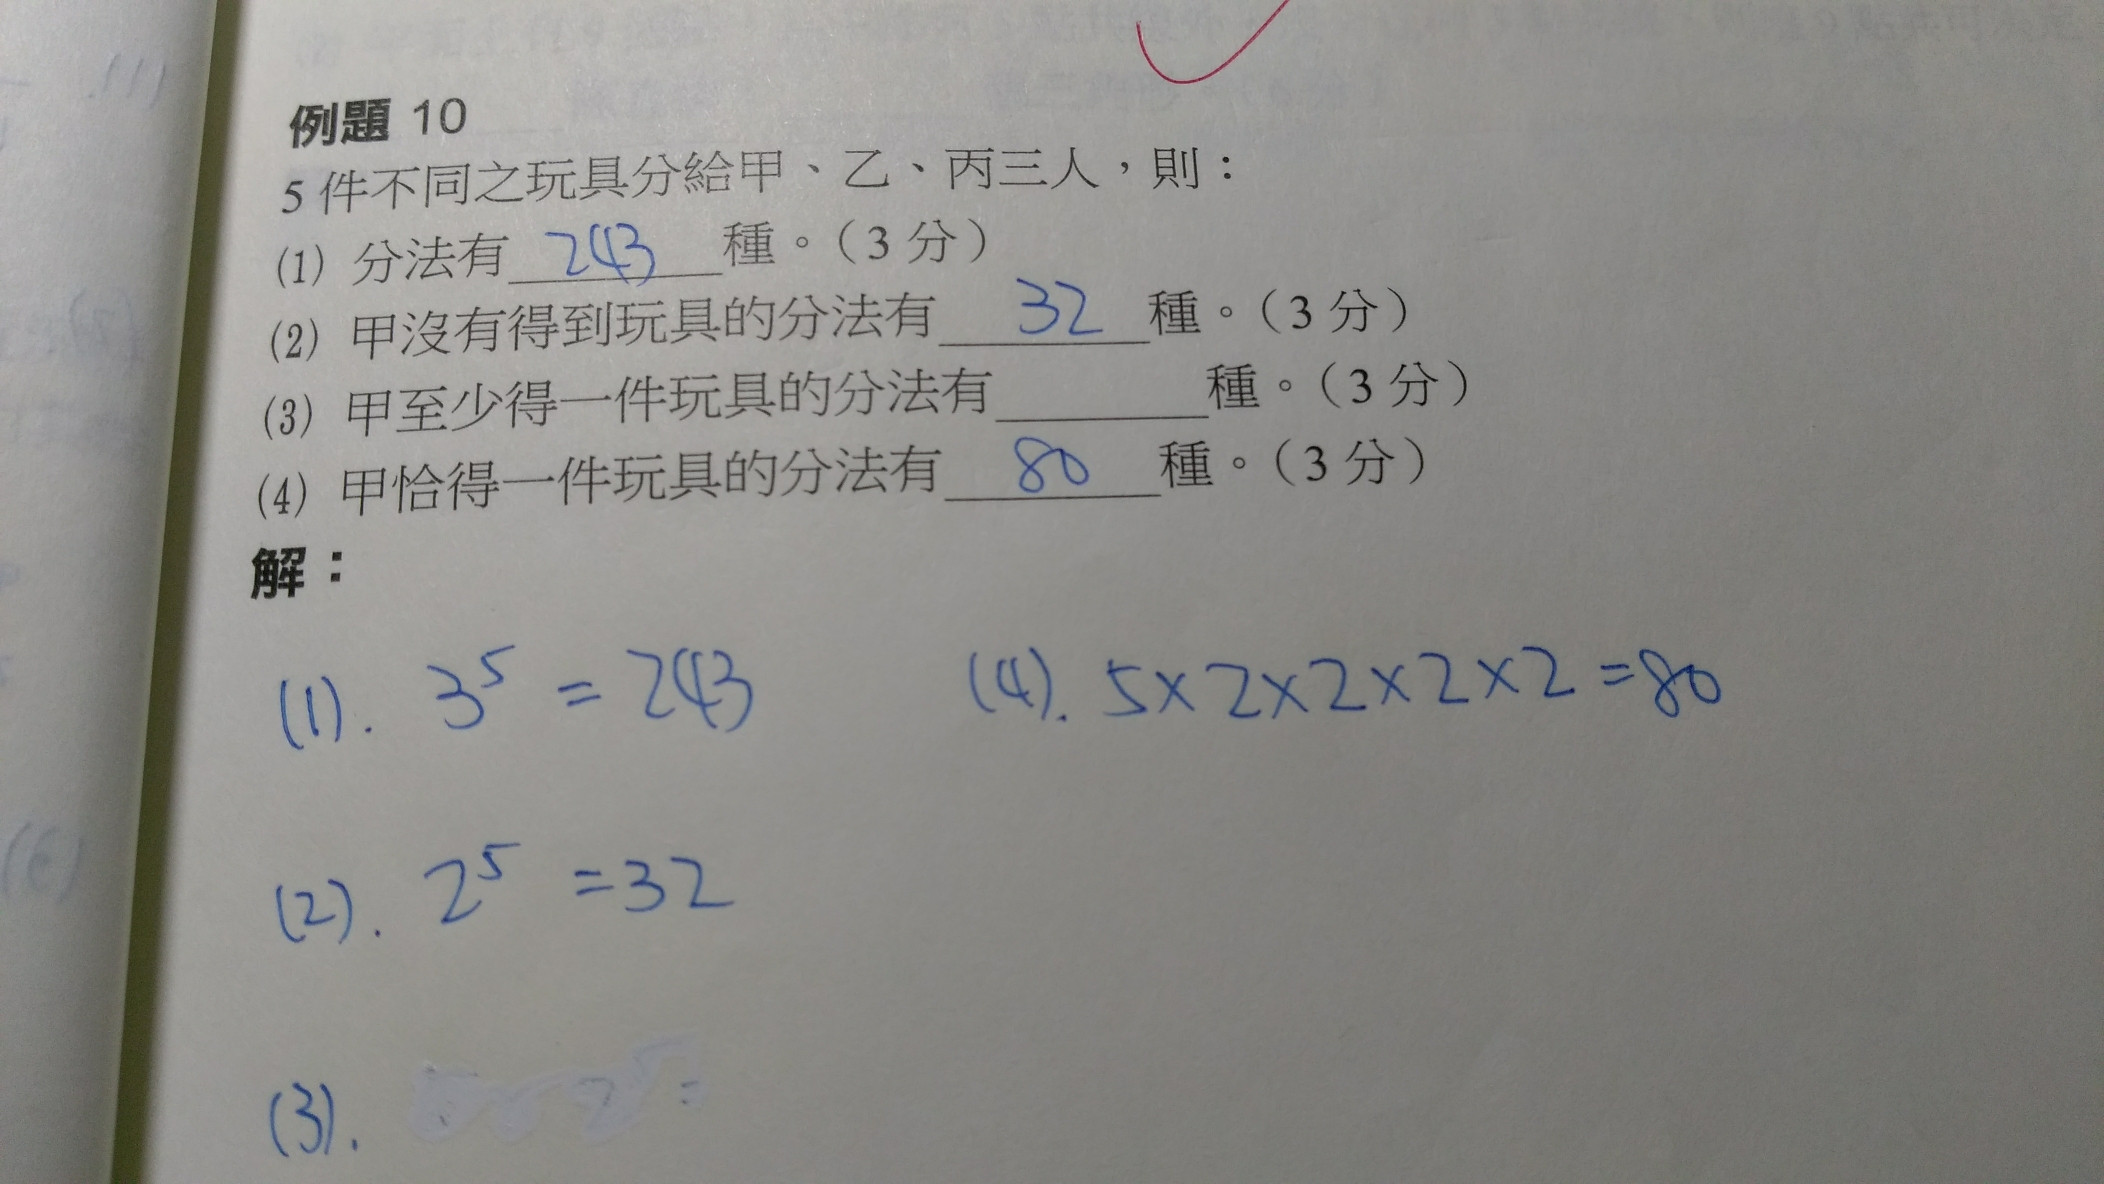 例題 10
5 件不同之玩具分給甲、乙、丙三人，則：
(1) 分法有 243 種。（3 分）
(2) 甲沒有得到玩具的分法有 32 種。（3 分）
(3) 甲至少得一件玩具的分法有______種。（3 分）
(4) 甲恰得一件玩具的分法有 80 種。（3 分）
解：
(1). 3⁵ = 243
(4). 5×2×2×2×2=80
(2). 2⁵ =32
(3).